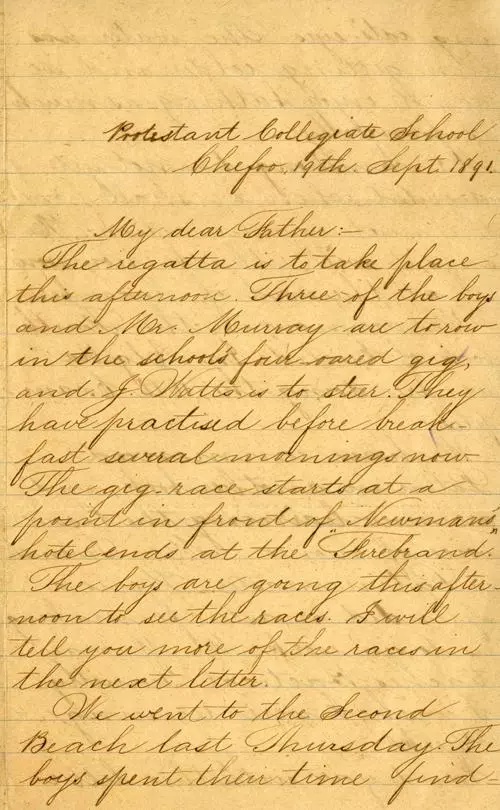 Protestant Collegiate School
Chefoo, 19th. Sept. 1891.
My dear Father:-
The regatta is to take place
this afternoon. Three of the boys
and Mr. Murray are to row
in the school's four oared gig,
and J. Watts is to steer. They
have practised before break-
fast several mornings now.
The gig-race starts at a
point in front of Newman's
hotel ends at the "Firebrand."
The boys are going this after-
noon to see the races. I will
tell you more of the races in
the next letter.
We went to the Second
Beach last Thursday. The
boys spent their time find-